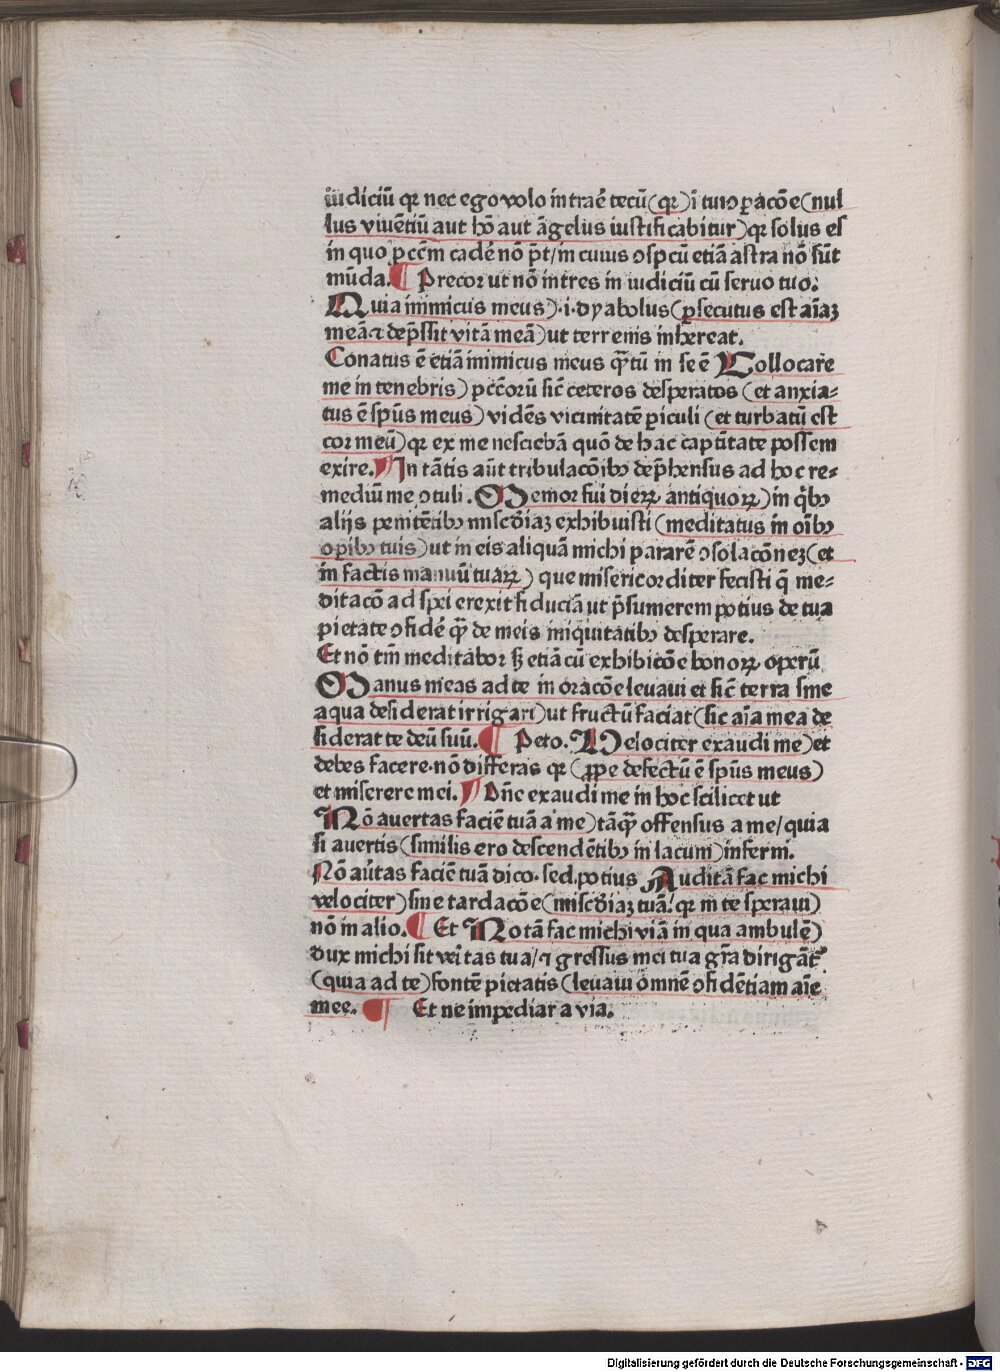 iudiciū qꝛ nec ego volo intraē tecū (qꝛ) ī tuiꝰ ꝑacōe (nul
lus viuētiū aut hō aut āgelus iustificabitur) qꝛ solus es
in quo pccm̄ cadē nō pt̄/ in cuius ꝯspcū etiā astra nō sūt
mūda. ¶ Precor ut nō intres in iudiciū cū seruo tuo.
Quia inimicus meus) .i. dyabolus (ꝑsecutus est aīaꝫ
meā ⁊ dep̄ssit vitā meā) ut terrenis inhereat.
Conatus ē etiā inimicus meus qꝫtū in se ē Collocare
me in tenebris) pccōrū sic̄ ceteros desperatos (et anxia-
tus ē spūs meus) vidēs vicinitatē ꝑiculi (et turbatū est
cor meū) qꝛ ex me nesciebā quō de hac captītate possem
exire. ¶ In tātis aūt tribulacōibꝰ dep̄hensus ad hoc re-
mediū me ꝯtuli. Memor fui dieꝝ antiquoꝝ) in qͥbꝰ
alijs penitētibꝰ misc̄diaꝫ exhibuisti (meditatus in oībꝰ
oꝑibꝰ tuis) ut in eis aliquā michi pararē ꝯsolacōneꝫ (et
in factis manuū tuaꝝ) que misericorditer fecisti q̄ me-
ditacō ad spei erexit fiduciā ut p̄sumerem potius de tua
pietate ꝯfidē qꝫ de meis iniquitatibꝰ desperare.
Et nō tm̄ meditabor sꝫ etiā cū exhibicōe bonoꝝ operū
Manus meas ad te in oracōe leuaui et sic̄ terra sine
aqua desiderat irrigari) ut fructū faciat (sic aīa mea de
siderat te deū suū. ¶ Peto. Velociter exaudi me) et
debes facere. nō differas qꝛ (ꝓpe defectū ē spūs meus)
et miserere mei. ¶ Dn̄e exaudi me in hoc scilicet ut
Nō auertas faciē tuā a me) tāqꝫ offensus a me/ quia
si auertis (similis ero descendētibꝰ in lacum) inferni.
Nō aūtas faciē tuā dico. sed potius Auditā fac michi
velociter) sine tardacōe (misc̄diaꝫ tuā. qꝛ in te speraui)
nō in alio. ¶ Et Notā fac michi viā in qua ambulē)
dux michi sit veītas tua/ ⁊ gressus mei tua gr̄a dirigāt.
(quia ad te) fontē pietatis (leuaui omnē ꝯfidētiam aīe
mee. ¶ Et ne impediar a via.
Digitalisierung gefördert durch die Deutsche Forschungsgemeinschaft - DFG